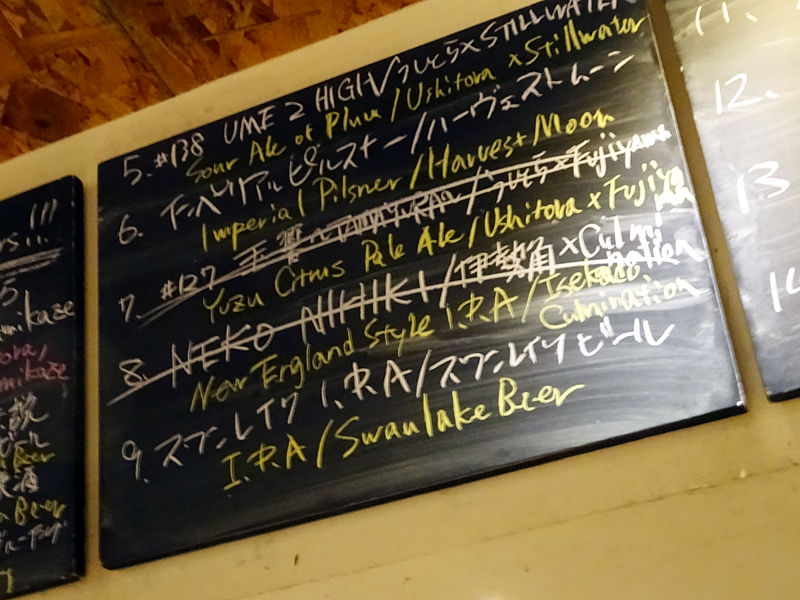 5. #138 UME 2 HIGH/うしとら×STILLWATER
Sour Ale of Plum/Ushitora × Stillwater
6. インペリアルピルスナー/ハーヴェストムーン
Imperial Pilsner/Harvest Moon
7. #127 玉響〜TAMAYURA〜/うしとら×Fujiyama
Yuzu Citrus Pale Ale/Ushitora × Fujiyama
8. NEKO NIHIKI/伊勢角×Culmination
New England Style I.P.A/Isekado
Culmination
9. スワンレイク I.P.A/スワンレイクビール
I.P.A/Swanlake Beer
!!!
5
kaze
ビール
Beer
Beer
11.
12.
13
14